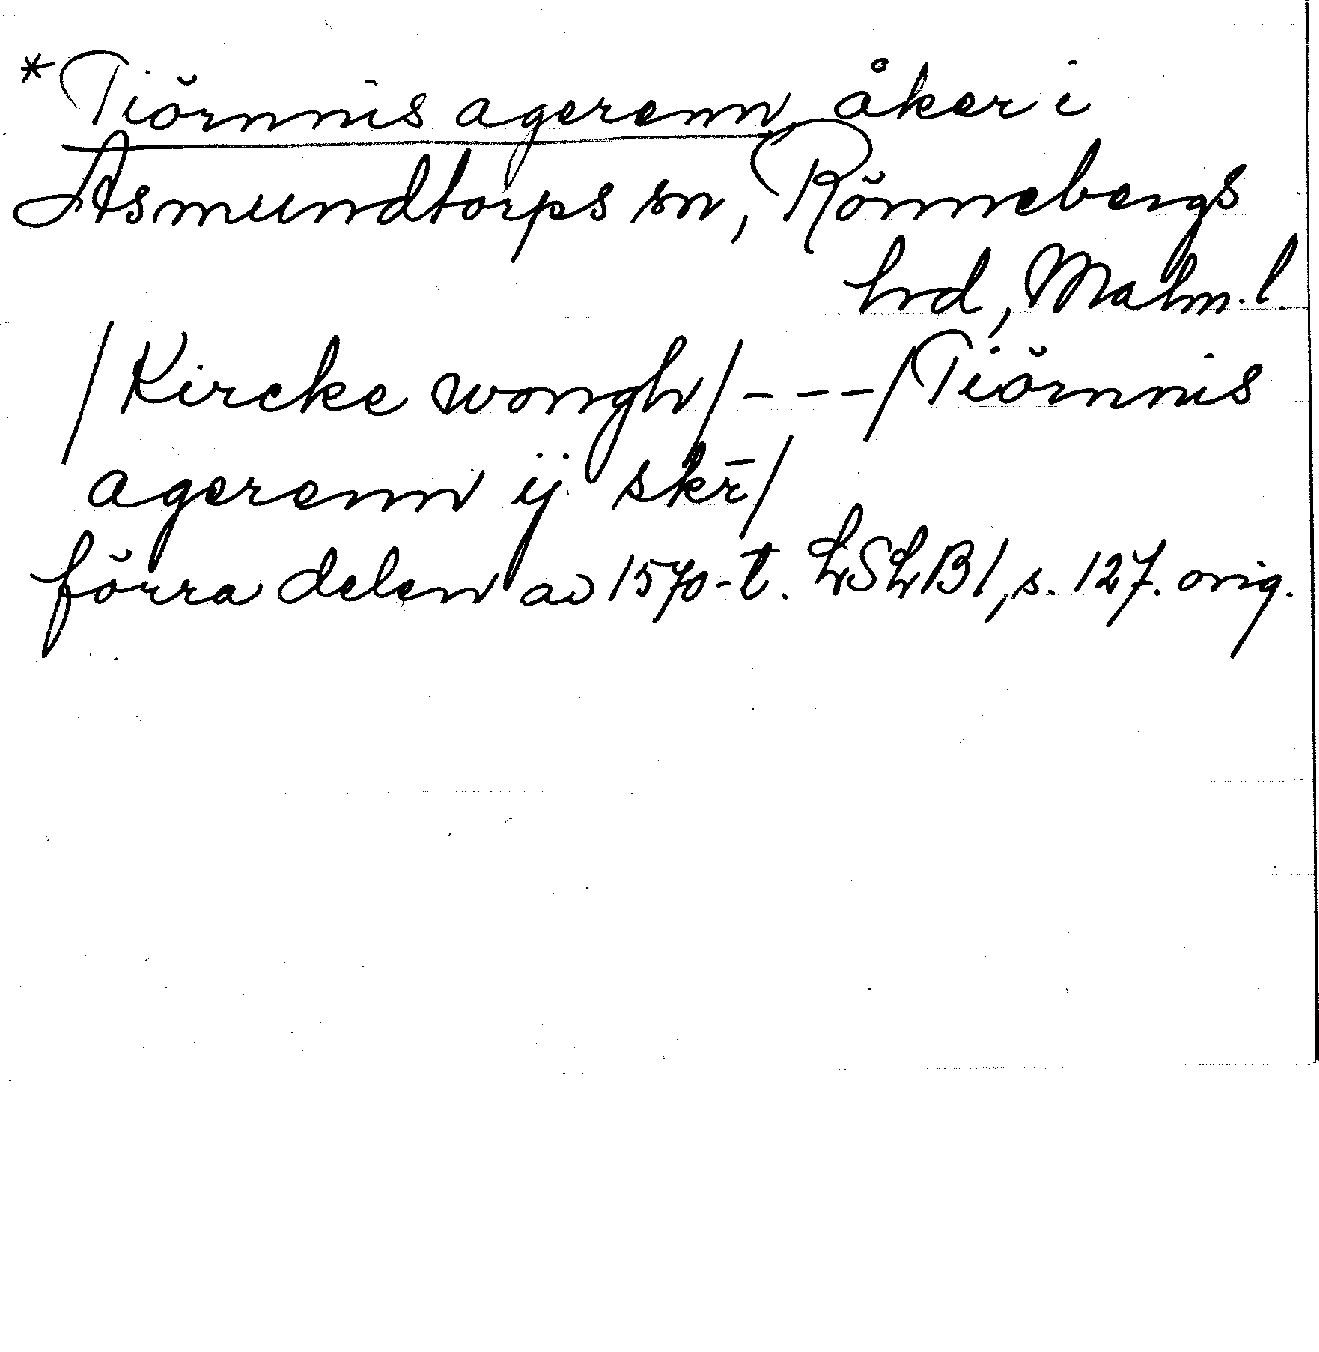 *Tiörnnis agerenn, åker i
Asmundtorps sn, Rönnebergs
hrd, Malm. l.
/Kircke wongh/ - - - /Tiörnnis
agerenn ij skr̄/
förra delen av 1570-t. LSLB1, s. 127. orig.